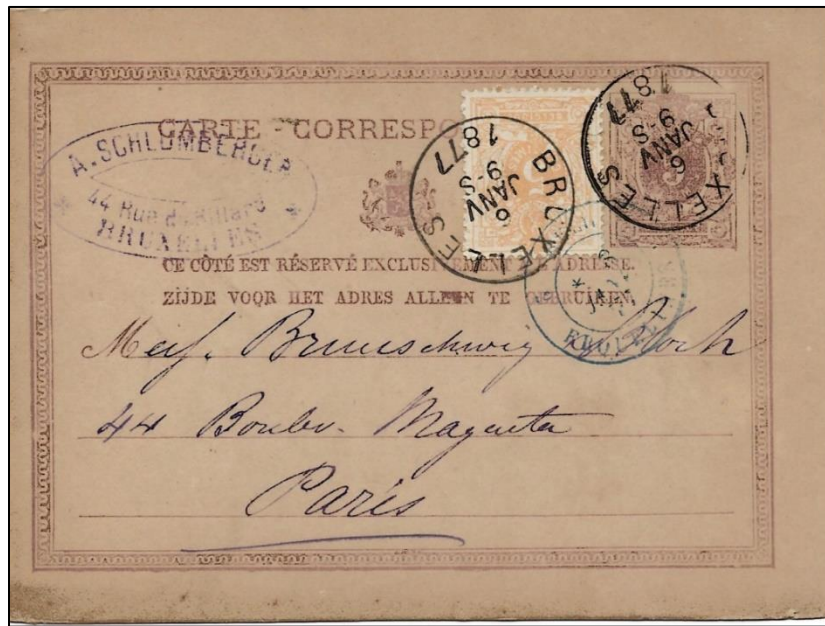 CARTE-CORRESPO
A. SCHLUMBERGER
44 Rue
BRUXELLES
BRUXELLES
6
JANV
9-S
1877
XELLES
6
JANV
9-S
1877
5
CE CÔTÉ EST RÉSERVÉ EXCLUSIVEMENT L'ADRESSE.
ZIJDE VOOR HET ADRES ALLEEN TE GEBRUIKEN.
Mess. Brunschwig Bloch
44 Boulev. Magenta
Paris